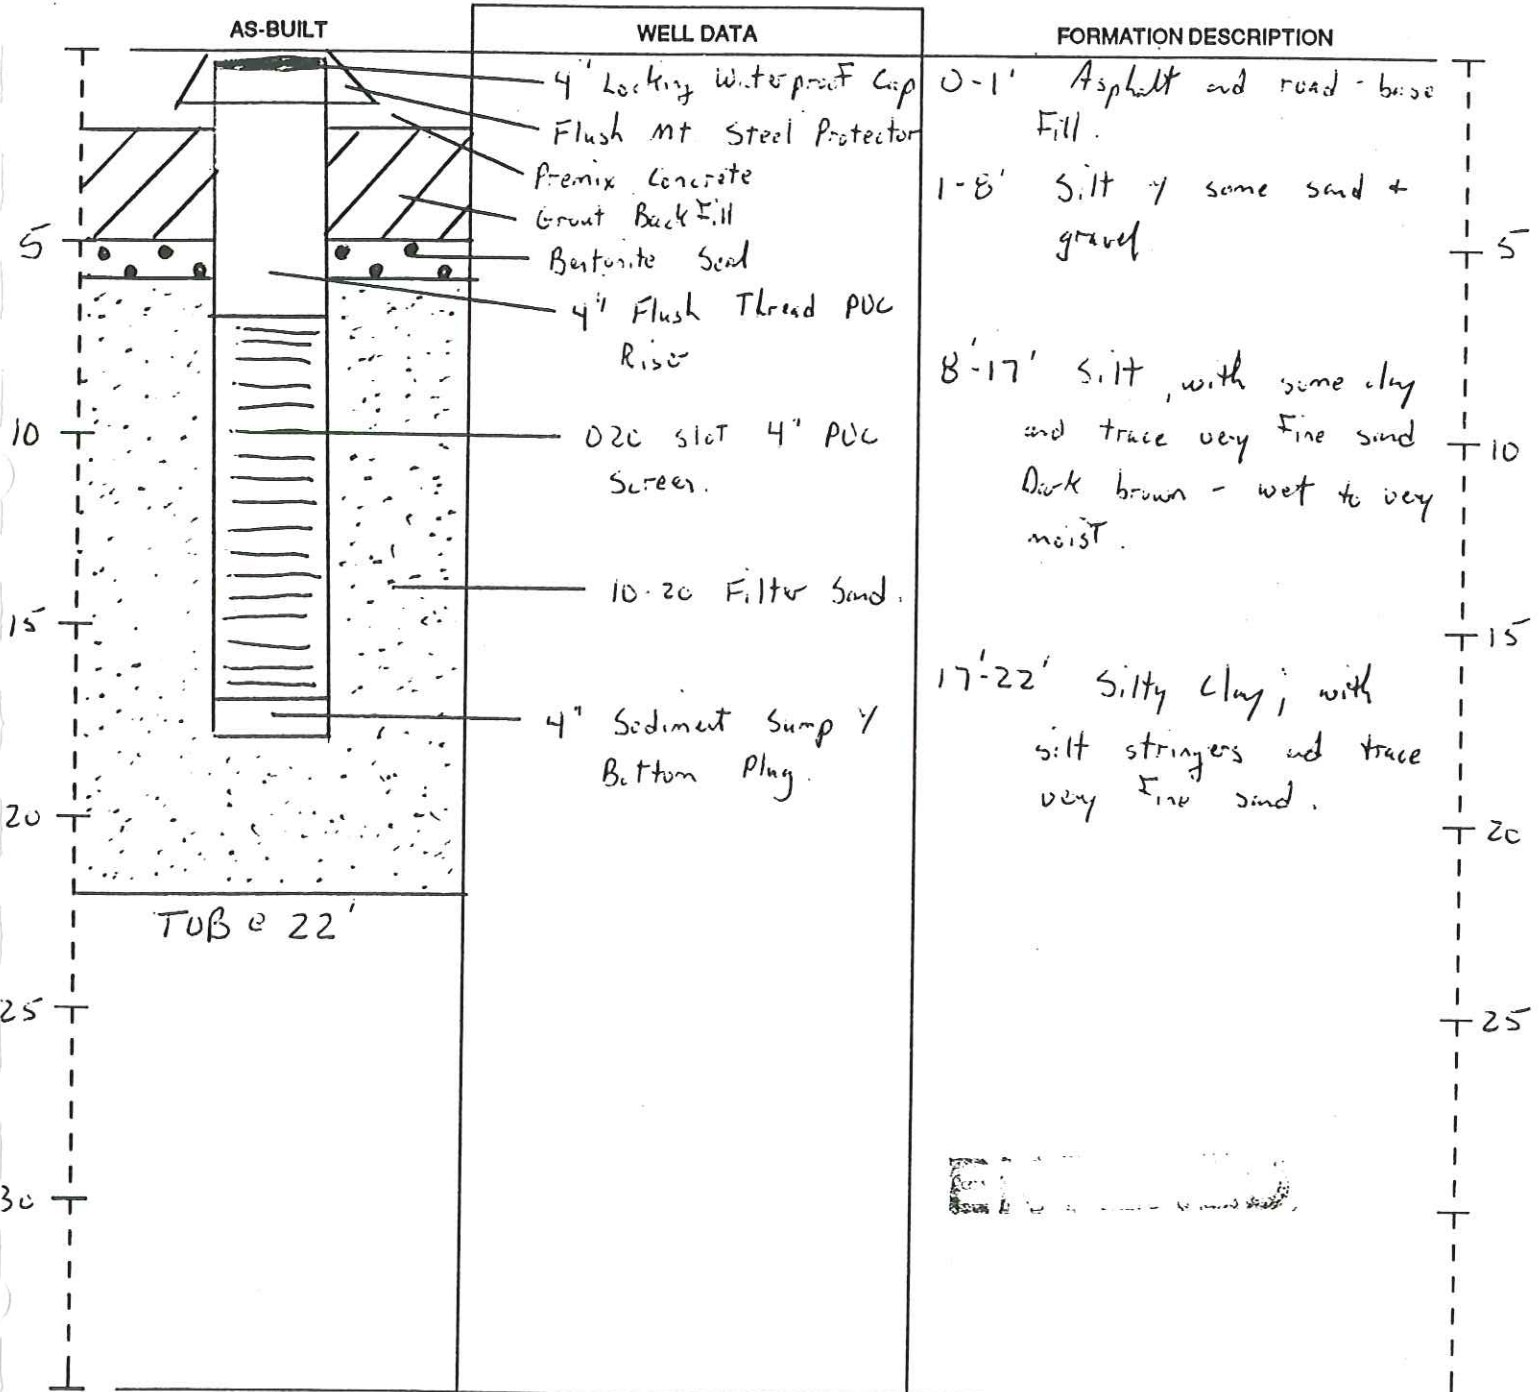 AS-BUILT
WELL DATA
FORMATION DESCRIPTION
4" Locking Waterproof Cap
Flush Mt Steel Protector
Premix Concrete
Grout Back Fill
Bentonite Seal
4" Flush Thread PVC
Riser
020 slot 4" PVC
Screen.
10-20 Filter Sand.
4" Sediment Sump y
Bottom Plug.
0-1' Asphalt and road-base
Fill.
1-8' Silt y some sand +
gravel
8'-17' Silt, with some clay
and trace very Fine sand
Dark brown - wet to very
moist.
17'-22' Silty Clay; with
silt stringers and trace
very Fine sand.
5
10
15
20
25
30
TOB @ 22'
5
10
15
20
25